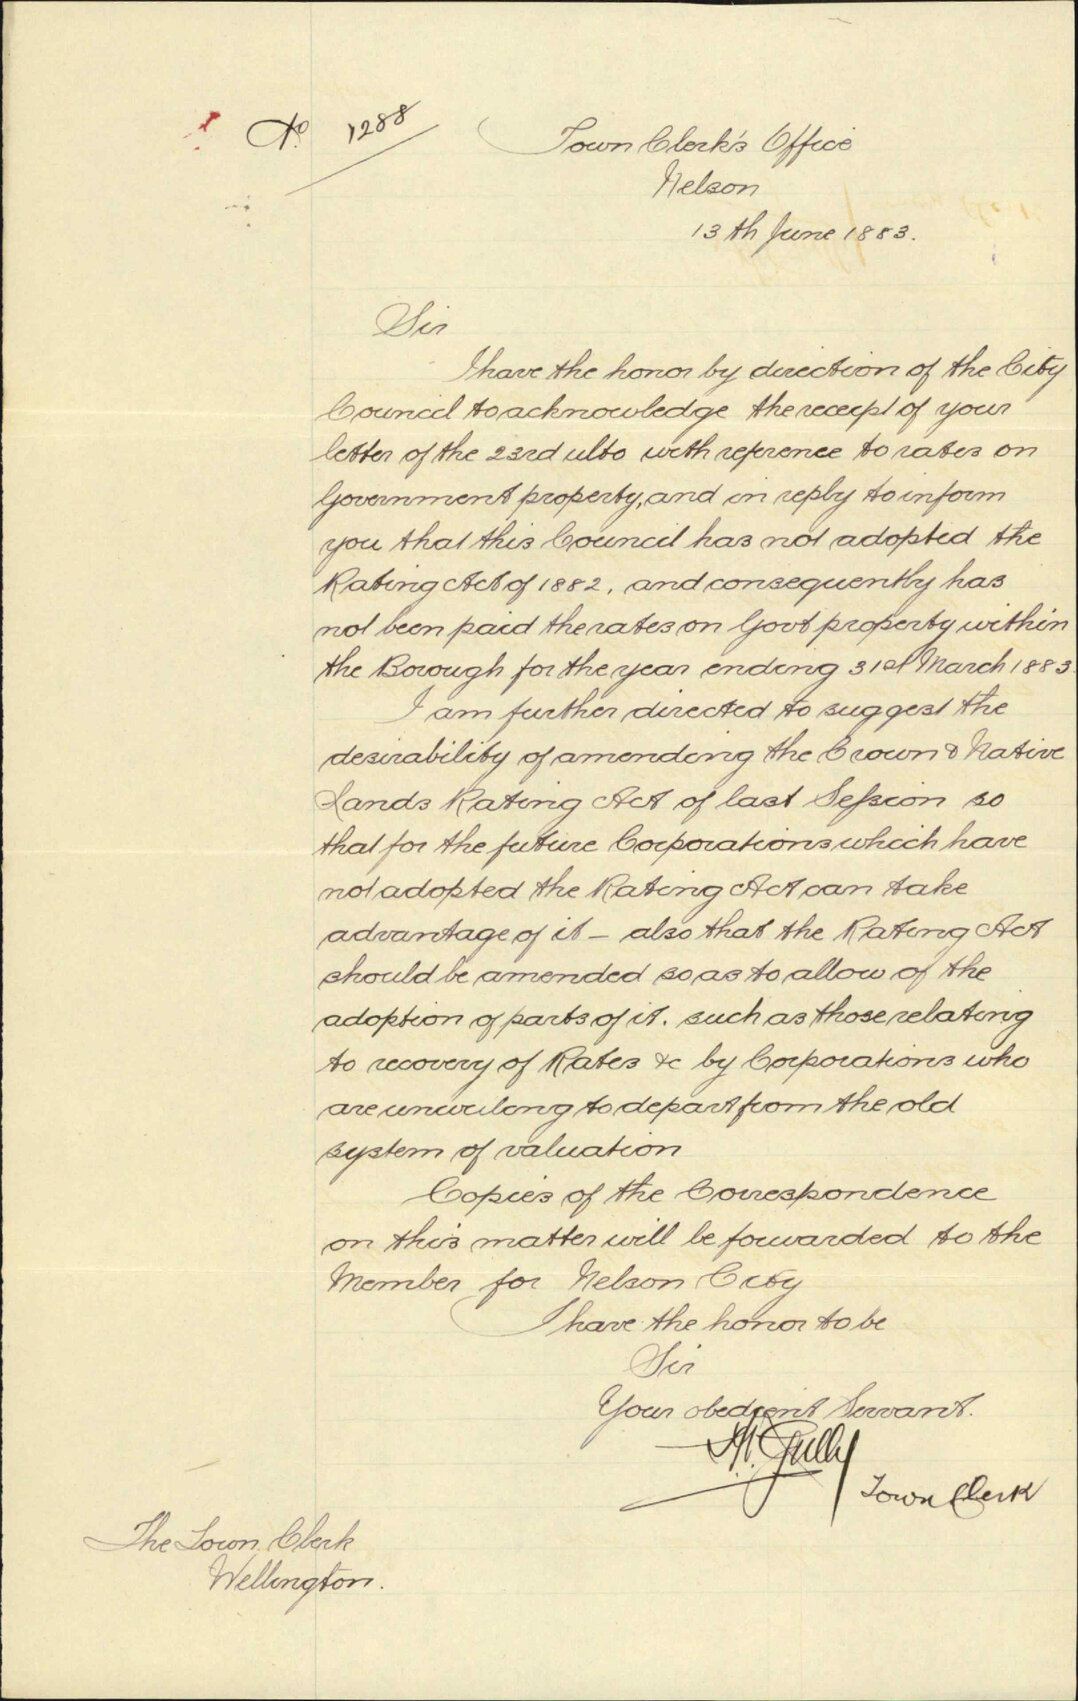 No 1288
Town Clerk's Office
Nelson
13th June 1883.
Sir
I have the honor by direction of the City
Council to acknowledge the receipt of your
letter of the 23rd ulto with reference to rates on
Government property, and in reply to inform
you that this Council has not adopted the
Rating Act of 1882, and consequently has
not been paid the rates on Govt property within
the Borough for the year ending 31st March 1883
I am further directed to suggest the
desirability of amending the Crown & Native
Lands Rating Act of last Session so
that for the future Corporations which have
not adopted the Rating Act can take
advantage of it – also that the Rating Act
should be amended so as to allow of the
adoption of parts of it. such as those relating
to recovery of Rates &c by Corporations who
are unwilling to depart from the old
system of valuation
Copies of the Correspondence
on this matter will be forwarded to the
Member for Nelson City
I have the honor to be
Sir
Your obedient Servant.
Gully
Town Clerk
The Town Clerk
Wellington.